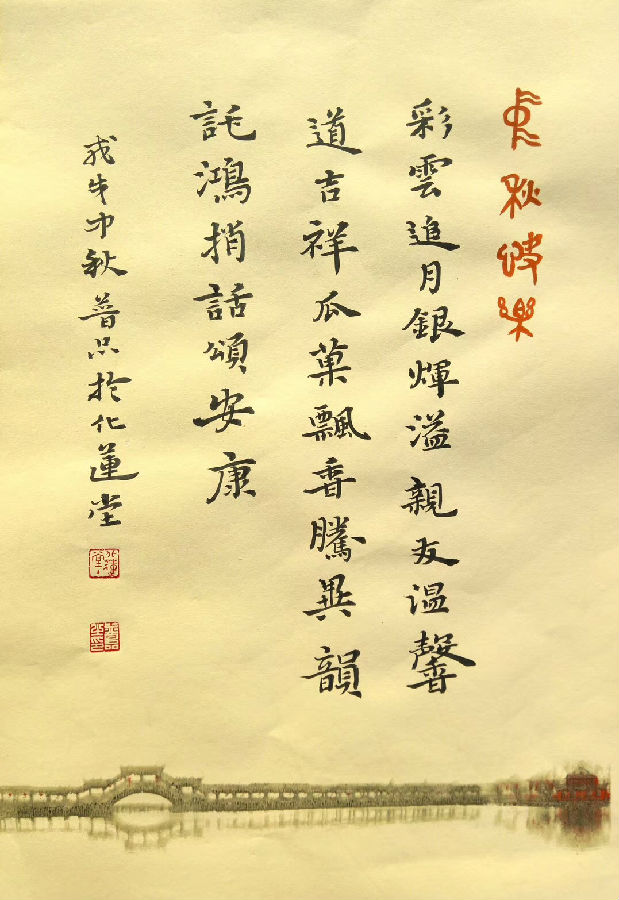 中秋快樂
彩雲追月銀煇溢親友溫馨
道吉祥瓜菓飄香騰異韻
託鴻捎話頌安康
戊戌中秋普品於化蓮堂